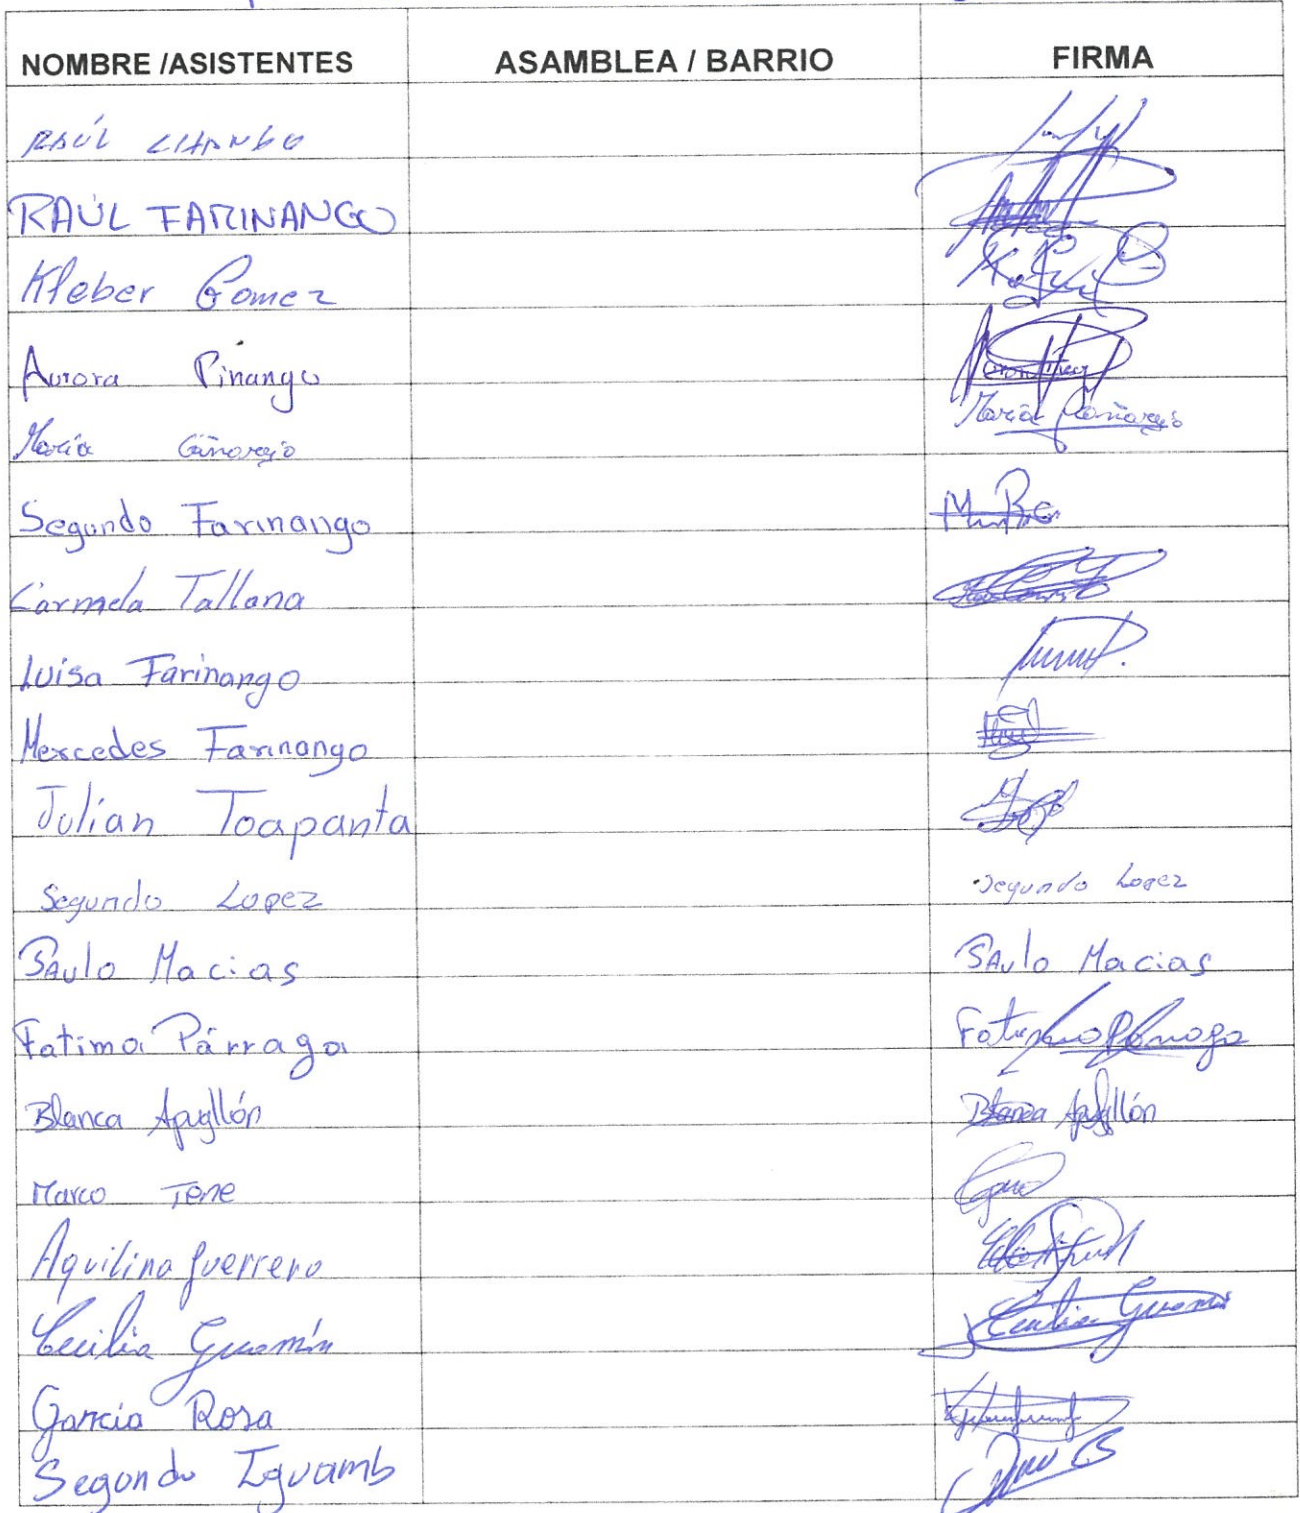 NOMBRE /ASISTENTES ASAMBLEA / BARRIO FIRMA
RAÚL CHANGO
RAÚL FARINANGO
Kleber Gomez
Aurora Pinango
María María
Segundo Farinango
Carmela Tallana
Luisa Farinango
Mercedes Farinango
Julian Toapanta
Segundo Lopez Segundo Lopez
SAulo Macias SAulo Macias
Fatima Párraga
Blanca Apugllón Blanca Apugllón
Marco Tene
Aquilino Guerrero
Cecilia Guamín Cecilia
Garcia Rosa
Segundo Iguamb